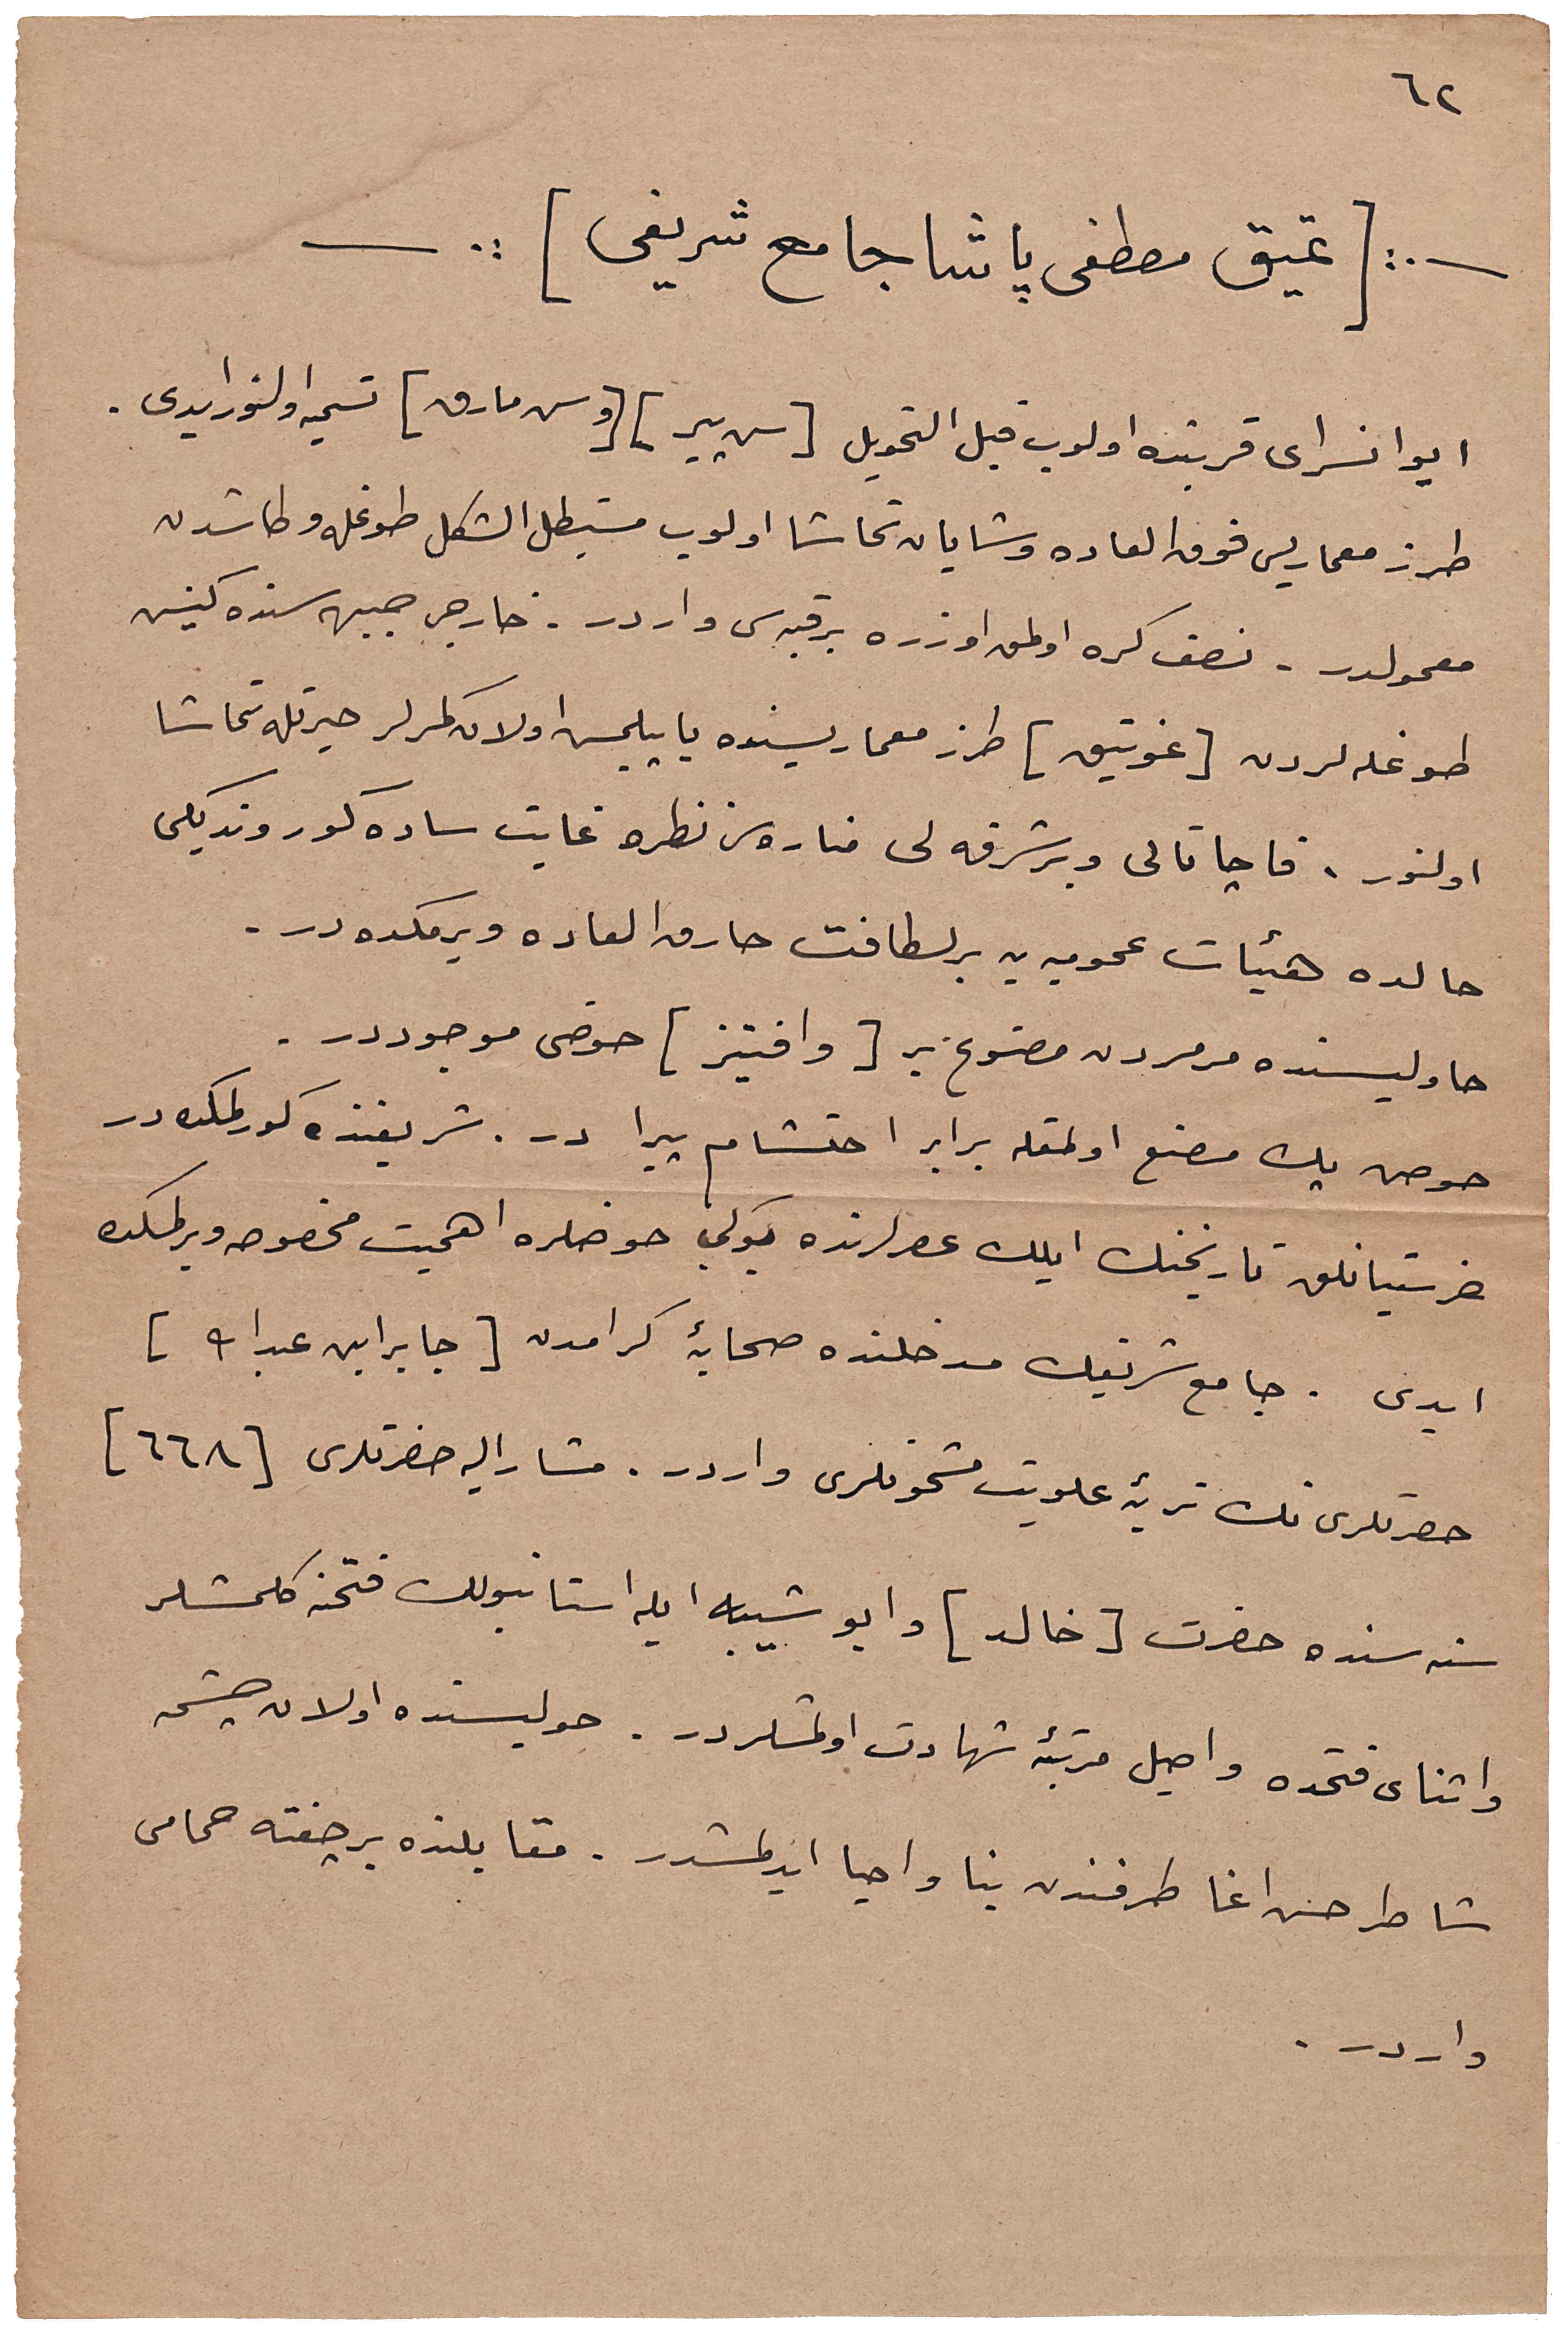 ٦٢
[ عتیق مصطفی پاشا جامع شریفی ]
ایوانسرای قربنده اولوب قبل التحویل [ سن پیر ] [ وسن مارق ] تسمیه اولنور ایدی .
طرز معماریسی فوق العاده وشایان تماشا اولوب مستطیل الشکل طوغله وطاشدن
معمولدر . نصف کره اولمق اوزره بر قبه سی واردر . خارجی جبهه سنده کنیش
طوغله لردن [ غوتیق ] طرز معماریسنده یاپیلمش اولان کمرلر حیرتله تماشا
اولنور . قاچاتالی وبر شرفه لی مناره سی نظره غایت ساده کوروندیکی
حالده هیئات عمومیه یه بر لطافت خارق العاده ویرمکده در .
حاولیسنده مرمردن مصنوع بر [ وافتیز ] حوضی موجوددر .
حوض پك مصنع اولمقله برابر احتشام پیرا در . شریفنده کورلمکده در
خرستیانلق تاریخنك ایلك عصرلرنده بوکبی حوضلره اهمیت مخصوصه ویرلمکده
ایدی . جامع شریفك مدخلنده صحابۀ کرامدن [ جابر ابن عبدالله ]
حضرتلری نك تربۀ علویت مشحونلری واردر . مشار الیه حضرتلری [ ٦٦٨ ]
سنه سنده حضرت [ خالد ] وابو شیبه ایله استانبولك فتحنه کلمشلر
واثنای فتحده واصل مرتبۀ شهادت اولمشلردر . حولیسنده اولان چشمه
شاطر حسن اغا طرفندن بنا واحیا ایدلمشدر . مقابلنده بر چفته حمامی
واردر .